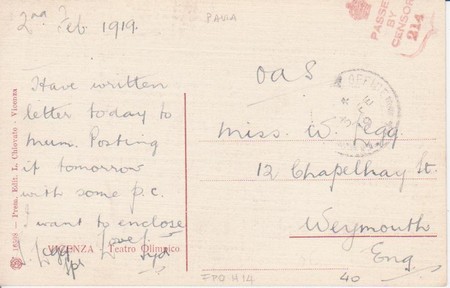 2nd Feb 1919.
Have written
letter today to
Mum. Posting
it tomorrow
with some p.c.
I want to enclose
Love Syd
L. Legg
VICENZA Teatro Olimpico
Prem. Edit. L. Chiovato - Vicenza
PAVIA
PASSED
BY
CENSOR
214
OAS
OFFICE
Miss. W. Legg
12 Chapelhay St.
Weymouth
Eng.
FPO H14
40